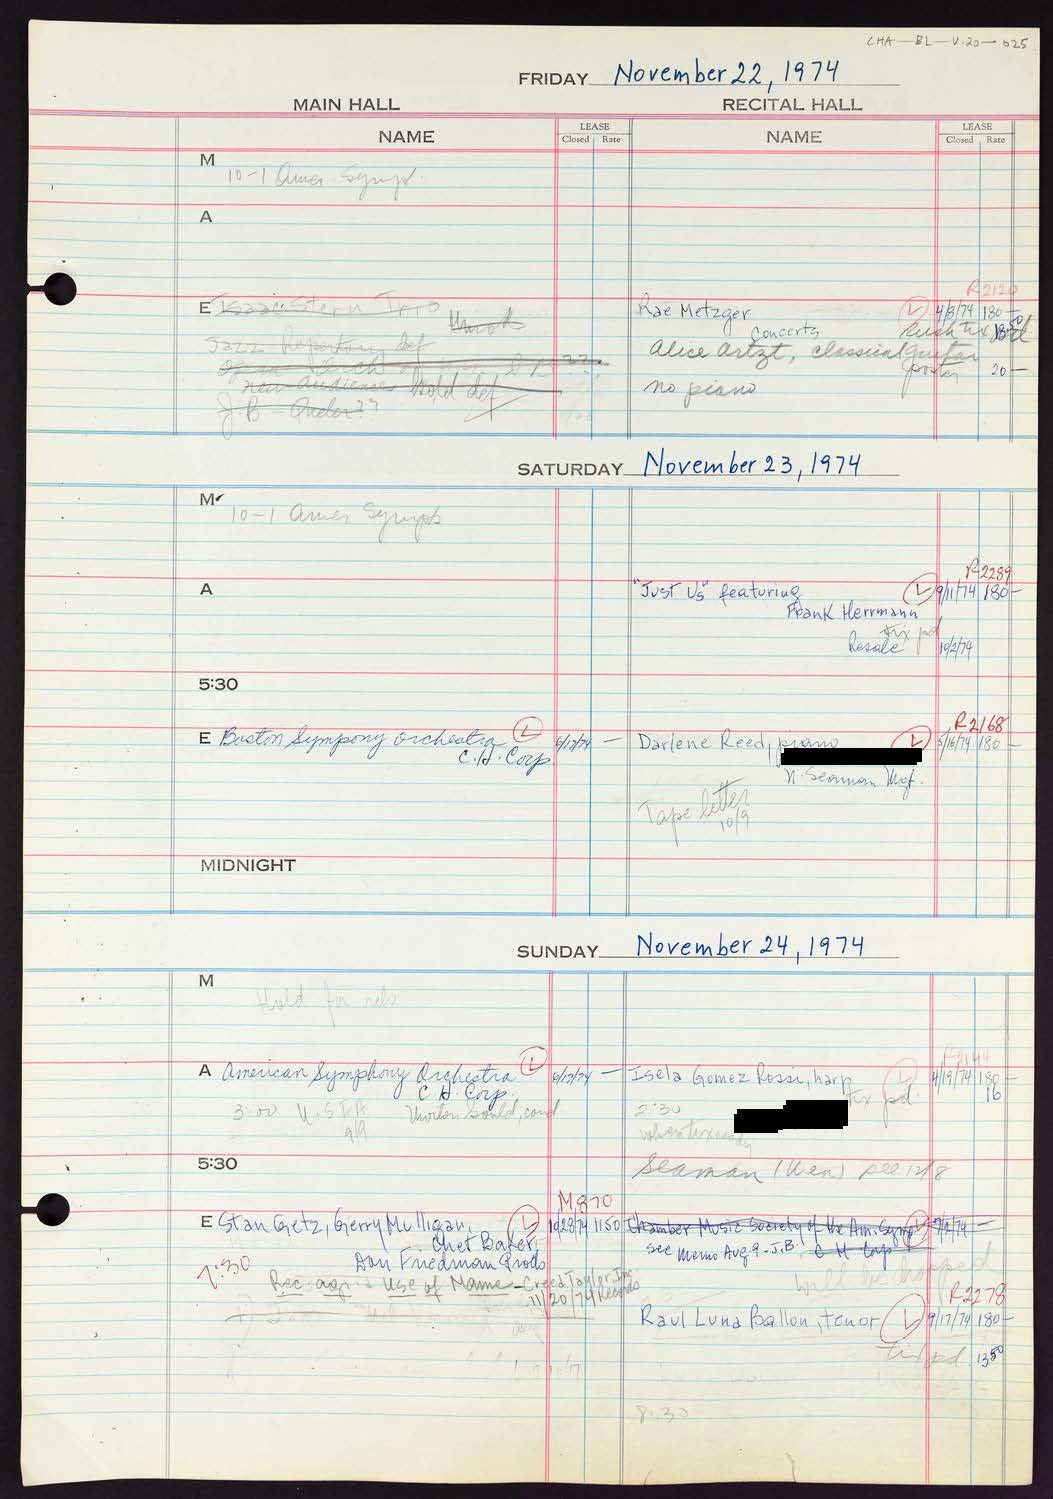 CHA-BL-V.20-025
FRIDAY November 22, 1974
MAIN HALL RECITAL HALL
NAME LEASE Closed Rate NAME LEASE Closed Rate
M
10-1 Amer Symph.
A
R2120
E Isaac Stern Trio Rae Metzger L 4/8/74 180-
Concerts
Jazz Repertory def Alice Artzt, classical guitar
20-
New Audiences hold def no piano
SATURDAY November 23, 1974
M
10-1 Amer Symph
R2289
A "Just Us" featuring L 9/11/74 180-
Frank Herrmann
tix pd
Resale 10/2/74
5:30
R2168
E Boston Sympony Orchestra L 6/17/74 - Darlene Reed, piano L 5/16/74 180-
C.H. Corp.
N. Seaman Mgt.
Tape letter
10/9
MIDNIGHT
SUNDAY November 24, 1974
M
Hold for
R2144
A American Symphony Orchestra L 6/17/74 - Isela Gomez Rossi, harp L 4/19/74 180-
C.H. Corp. tix pd. 16
3:00 U.S.I.A. Morton Gould, cond 2:30
9/9
5:30 Seaman (Ken) see 12/8
M870
E Stan Getz, Gerry Mulligan, L 10/28/74 1150 Chamber Music Society of the Am. Symp L
Chet Baker, see memo Aug. 9 - J.B. C H Corp
Don Friedman Prods
7:30 will be dropped
Rec. agr. & Use of Name - Creed Taylor, Inc.
11/20/74 Records
R2278
Raul Luna Ballon, tenor L 9/17/74 180-
tix pd 13 50
8:30